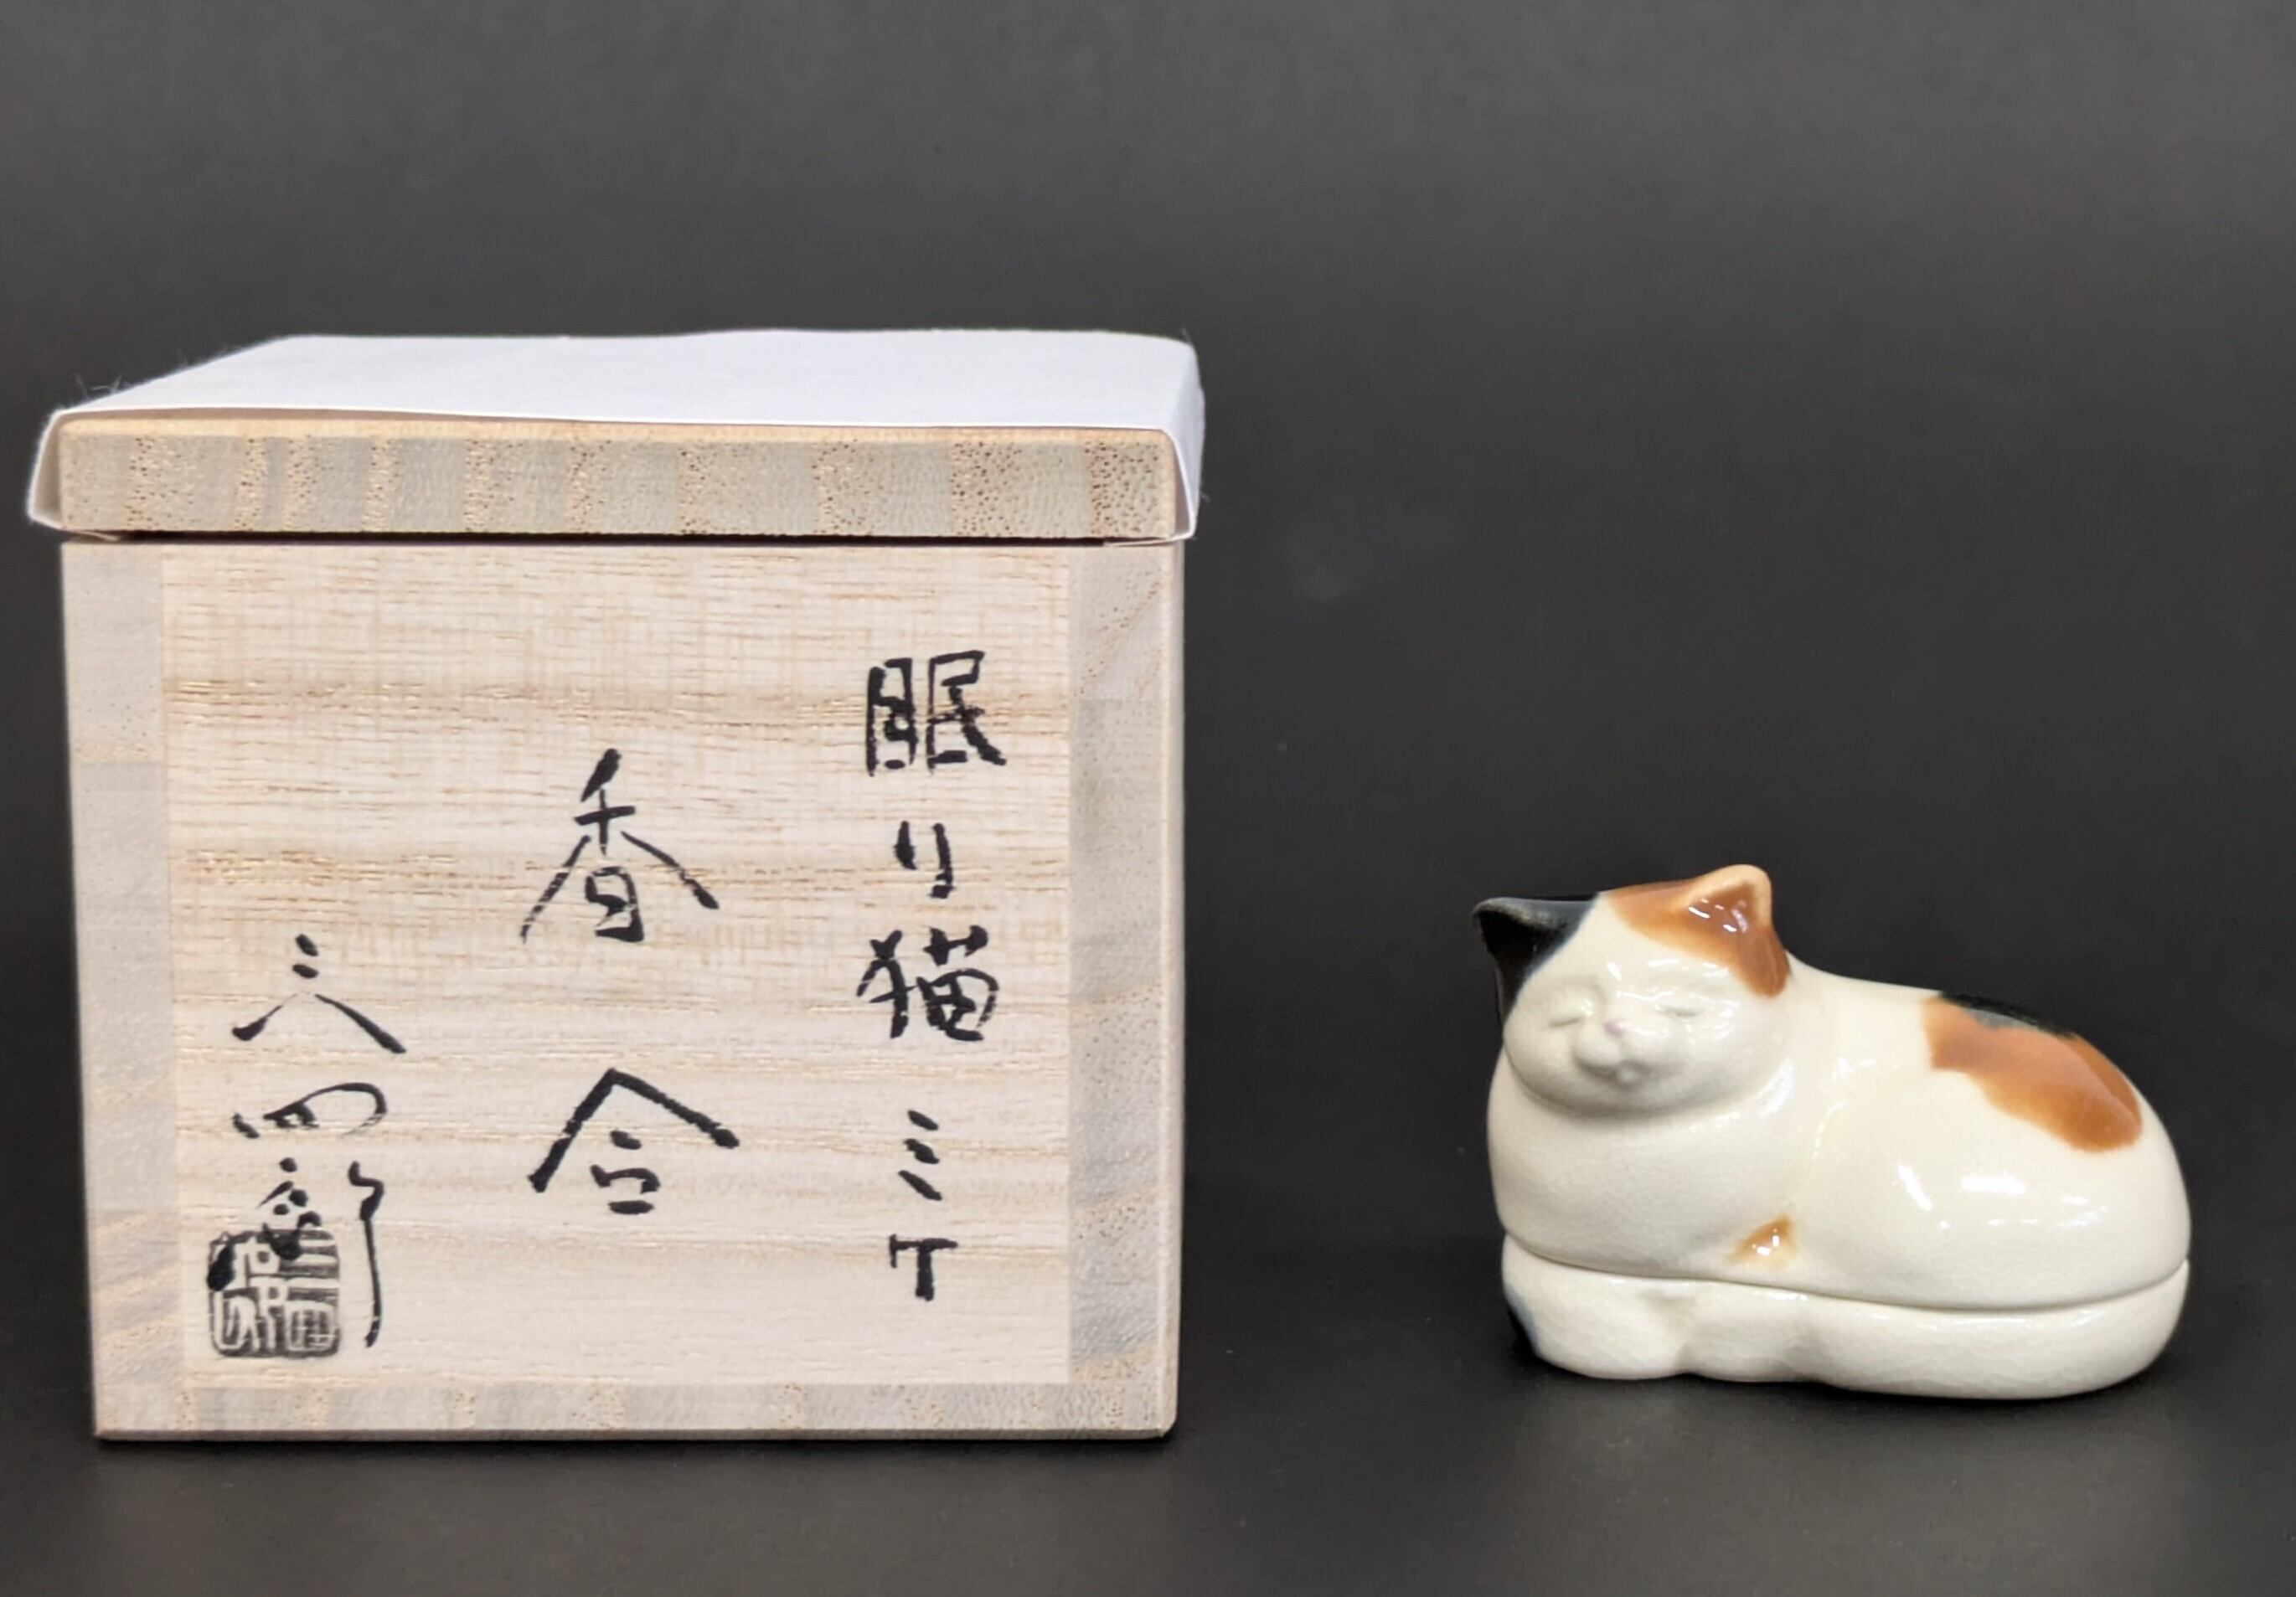 眠り猫ミケ
香合
六四郎